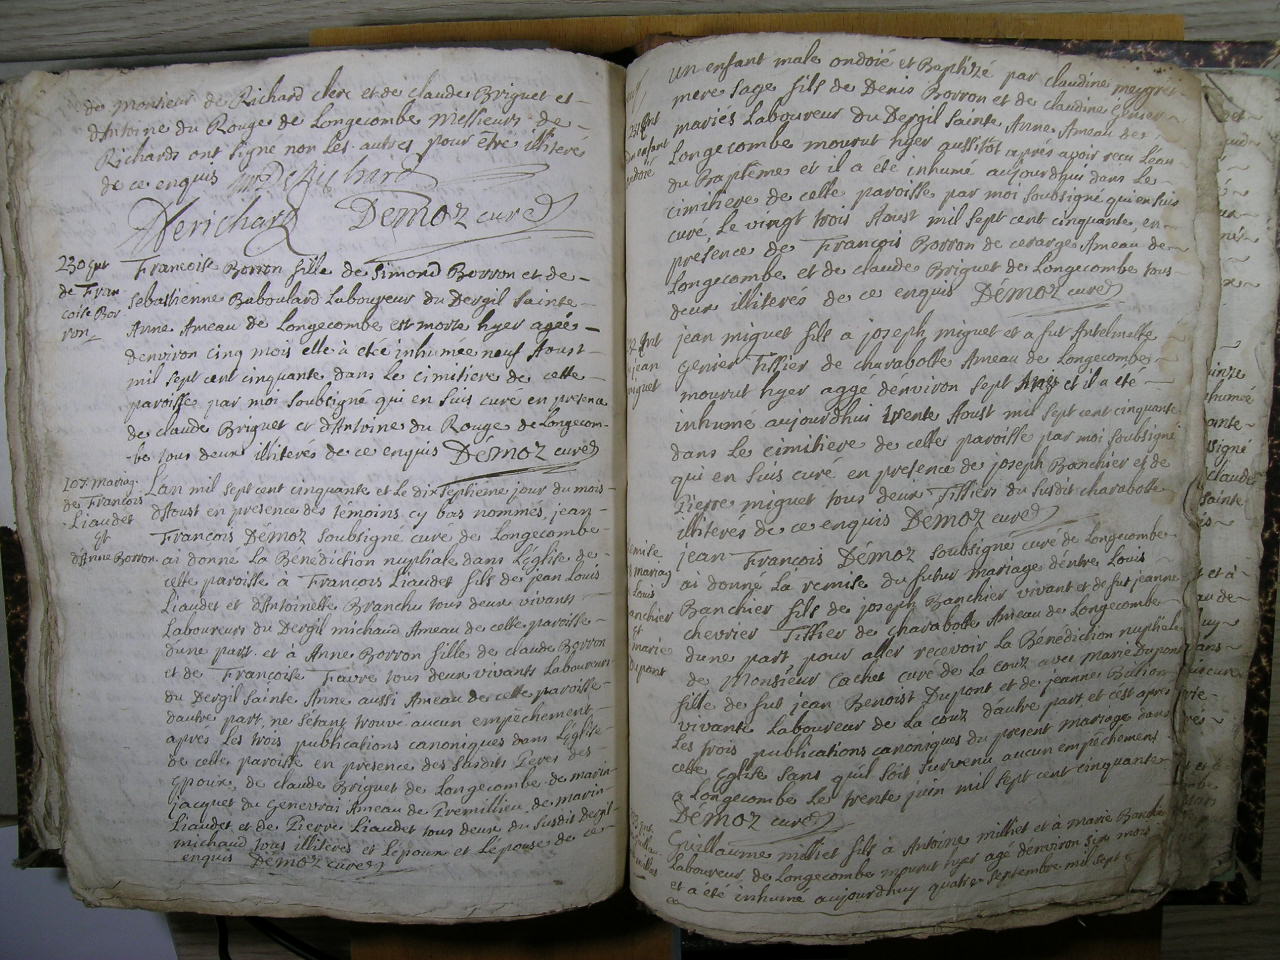 de Monsieur de Richard clerc et de claude Briguet et
d'Antoine du Rouge de Longecombe Messieurs de
Richards ont signé non les autres pour être illiterés
de ce enquis
Derichard Démoz curé
230 Ent
de Fran
coise Bor
ron
Francoise Borron fille de Simond Borron et de
sebastienne Baboulard Laboureur du Dergil sainte
Anne Ameau de Longecombe est morte hyer agée
denviron cinq mois elle à etée inhumée neuf Aoust
mil sept cent cinquante dans le cimitiere de cette
paroisse par moi soubsigné qui en suis curé en presence
de claude Briguet et d'Antoine du Rouge de Longecom-
be tous deux illiterés de ce enquis Démoz curé
107. mariag.
de François
Liaudet
et
d'Anne Borron
L'an mil sept cent cinquante et le dix septieme jour du mois
d'Aoust en presence des temoins cy bas nommés, jean
François Démoz soubsigné curé de Longecombe
ai donné la Benediction nuptiale dans L'Eglise de
cette paroisse à François Liaudet fils de jean Louis
Liaudet et d'Antoinette Branchu tous deux vivants
Laboureurs du Dergil michaud Ameau de cette paroisse
d'une part et à Anne Borron fille de claude Borron
et de Françoise Favre tous deux vivants Laboureurs
du Dergil sainte Anne aussi Ameau de cette paroisse
d'autre part, ne s'étant trouvé aucun empêchement
aprés les trois publications canoniques dans L'Eglise
de cette paroisse en presence des susdits Peres des
Epoux, de claude Briguet de Longecombe de marin
jacquet du Genevrai Ameau de Premillieu de marin
Liaudet et de Pierre Liaudet tous deux du susdit Dergil
michaud tous illiterés et L'epoux et L'epouse de ce
enquis Démoz curé
231 Ent
d'un enfant
ondoié
Un enfant male ondoié et Baptizé par claudine meygret
mere sage fils de Denis Borron et de claudine Genier
mariés Laboureur du Dergil sainte Anne Ameau de
Longecombe mourut hyer aussitôt aprés avoir recu L'eau
du Baptême et il a été inhumé aujourdhui dans le
cimitiere de cette paroisse par moi soubsigné qui en suis
curé le vingt trois Aoust mil sept cent cinquante en
présence de François Borron de cerarge Ameau de
Longecombe et de claude Briguet de Longecombe tous
deux illiterés de ce enquis Démoz curé
Ent
jean
miguet
jean miguet fils à joseph miguet et a fut Antelmette
Genier Tissier de charabotte Ameau de Longecombe
mourut hyer aggé denviron sept Ans et il a été
inhumé aujourdhui trente Aoust mil sept cent cinquante
dans le cimitiere de cette paroisse par moi soubsigné
qui en suis curé en presence de joseph Banchier et de
Pierre miguet tous deux Tissiers du susdit charabotte
illiterés de ce enquis Démoz curé
remise
mariag
Louis
Banchier
et
marie
Dupont
jean François Démoz soubsigné curé de Longecombe
ai donné La remise du futur mariage d'entre Louis
Banchier fils de joseph Banchier vivant et de fut jeanne
chevrier Tissier de charabotte Ameau de Longecombe
d'une part pour aller recevoir la Bénédiction nuptiale
de Monsieur cachet curé de La couz avec marie Dupont
fille de fut jean Benoist Dupont et de jeanne Billion
vivante Laboureur de La couz d'autre part et c'est aprés
Les trois publications canoniques du present mariage dans
cette Eglise sans qu'il soit survenu aucun empêchement
a Longecombe le trente juin mil sept cent cinquante
Démoz curé
Guillaume milliet fils à Antoine milliet et à marie Banche
Laboureur de Longecombe mourut hyer agé denviron six mois
et a été inhumé aujourdhuy quatre septembre mil sept